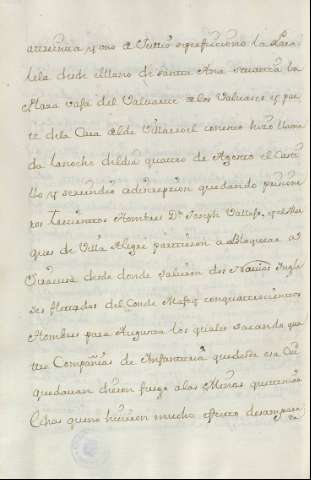 treinta y uno de Julio se perficionó la Para
lela desde el llano de Santa Ana
Plaza vaja del Valuarte de los Valuartes y par
te dela Casa de Villarroel con esto hizo llama
da la noche del dia quatro de Agosto el Casti
llo y se rindió a discrepcion quedando prisione
ros trescientos Hombres Dn. Joseph Vallejo, y el Mar
ques de Villa Alegre partieron a Bloquear a
Siracusa desde donde salieron dos Navios Ingle
ses fletados del Conde Mafei con quatrocientos
Hombres para Augusta los quales sacando qua
tro Compañias de Infanteria que desde esa Ciu
quedavan dieron fuego alas Minas que tenian
echas que no hicieron mucho efecto desampara